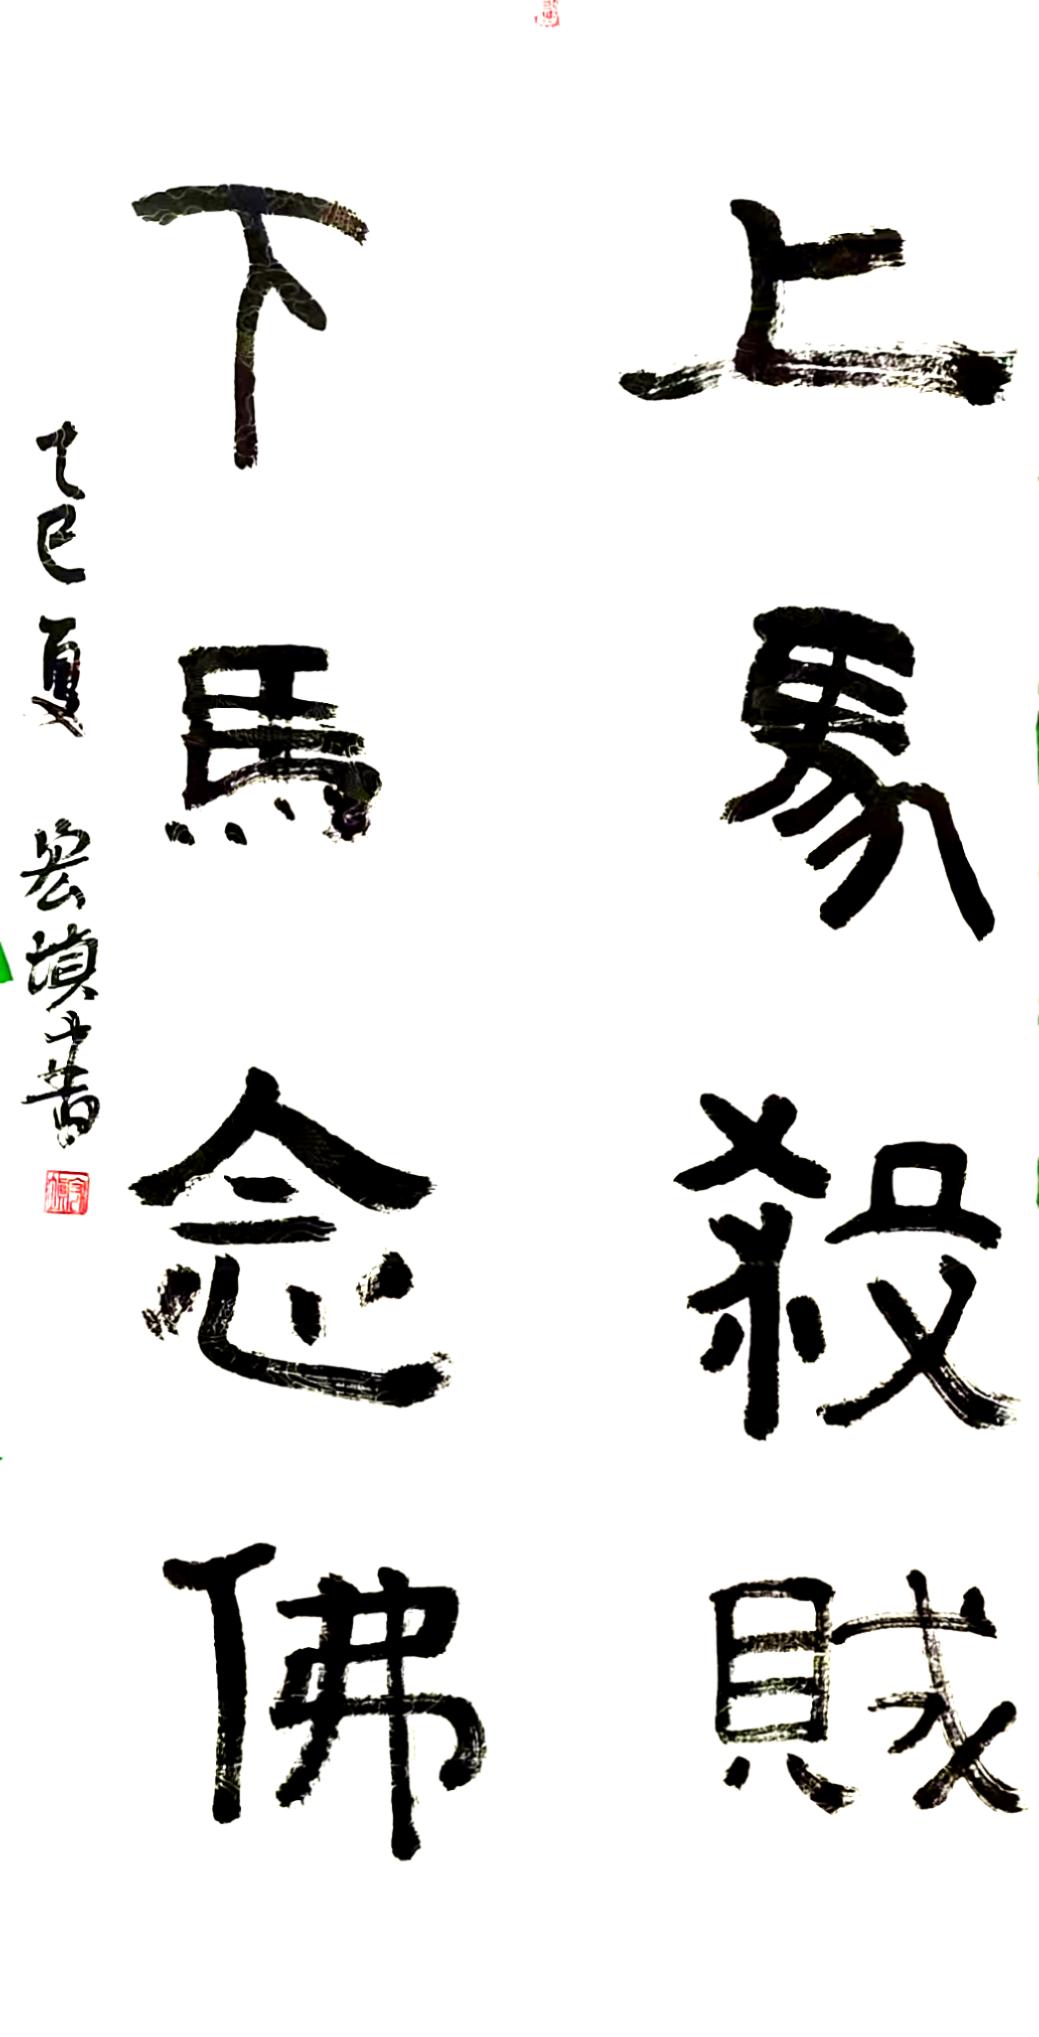 上馬殺賊
下馬念佛
乙巳夏 宏滇書